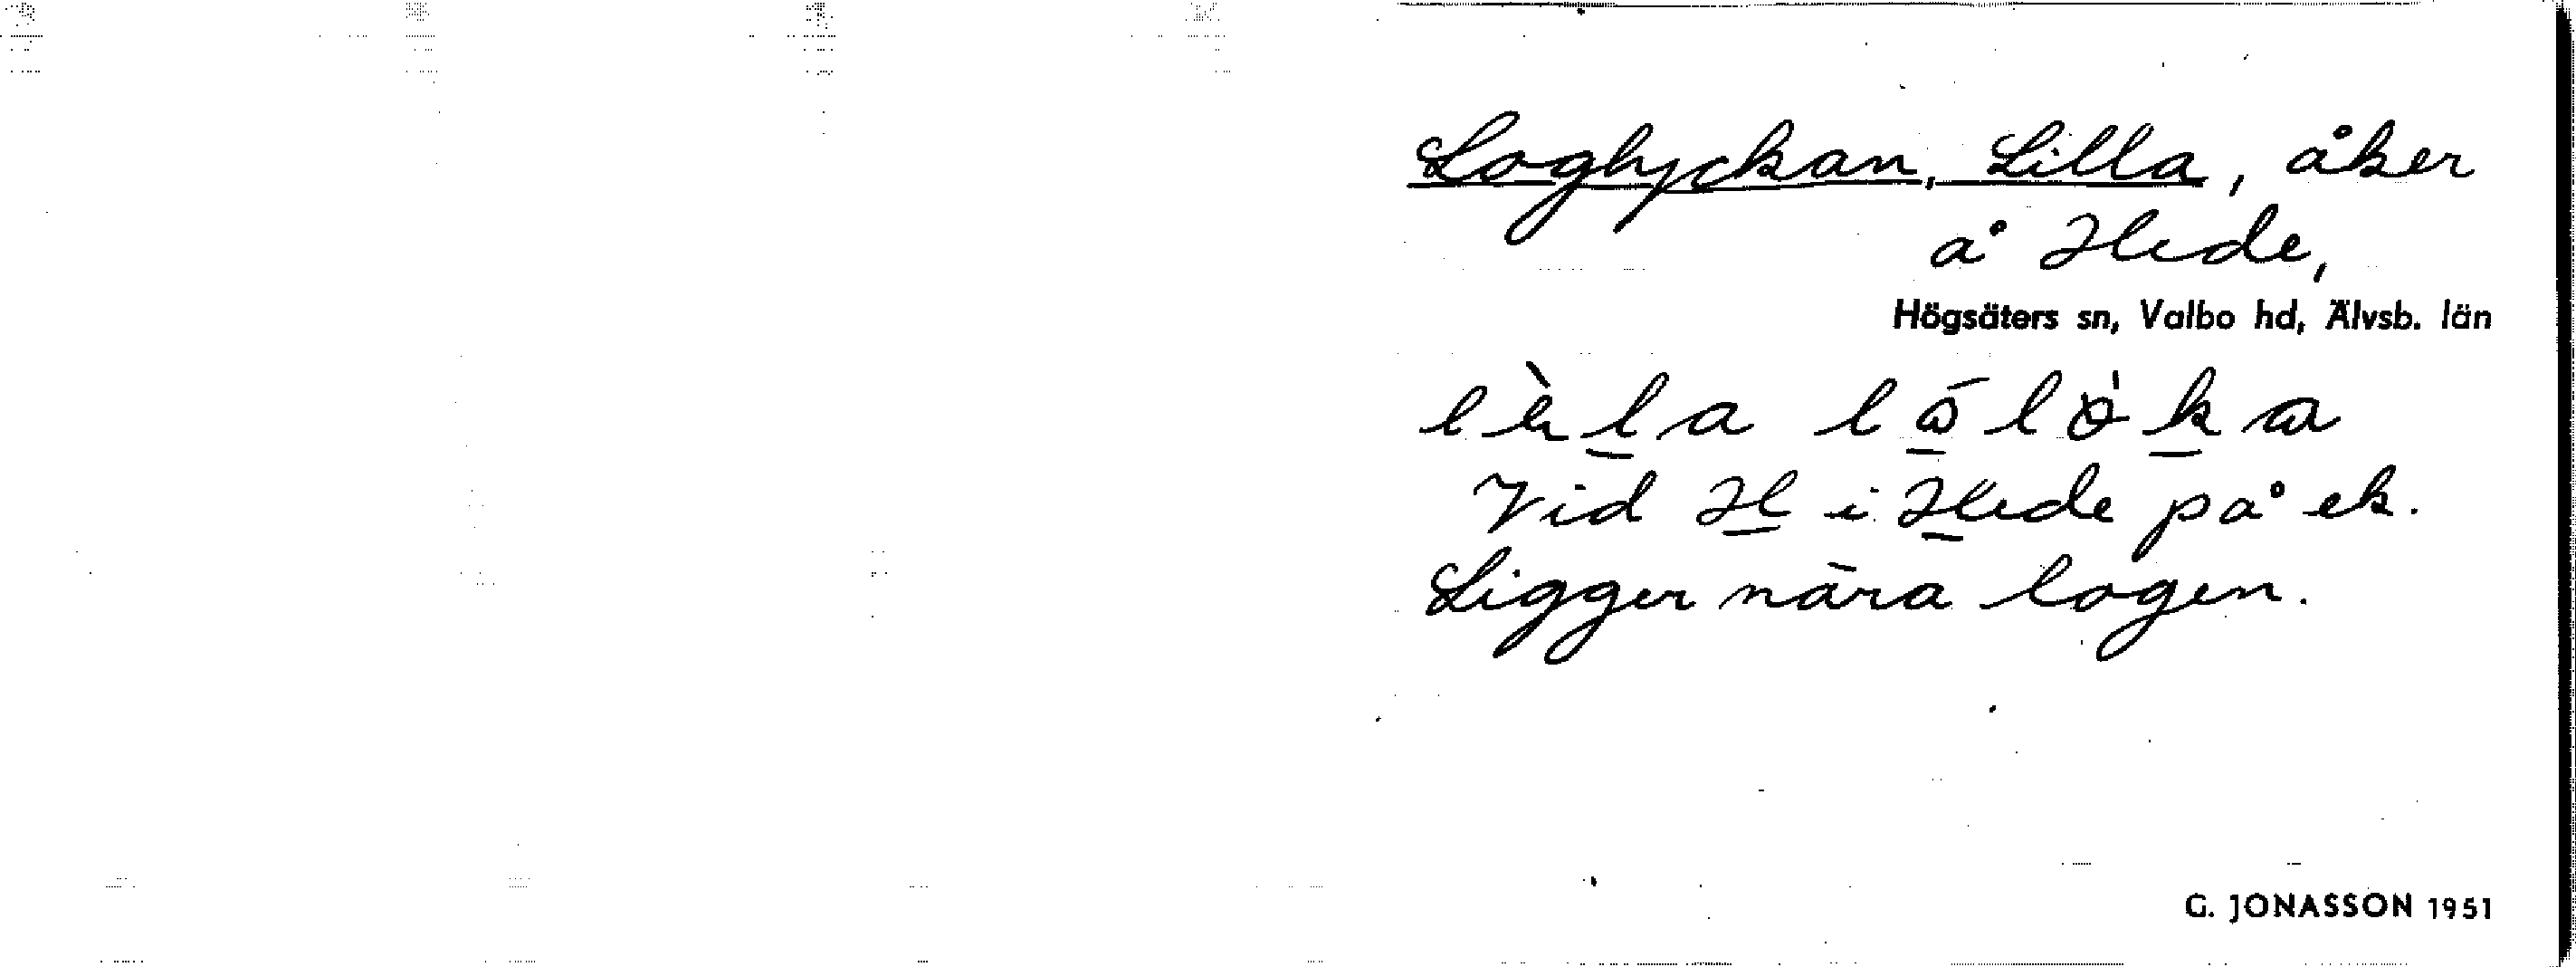 Loglyckan, Lilla, åker
å Hede,
Högsäters sn, Valbo hd, Älvsb. län
Vid H i Hede på ek.
Ligger nära logen.
G. JONASSON 1951